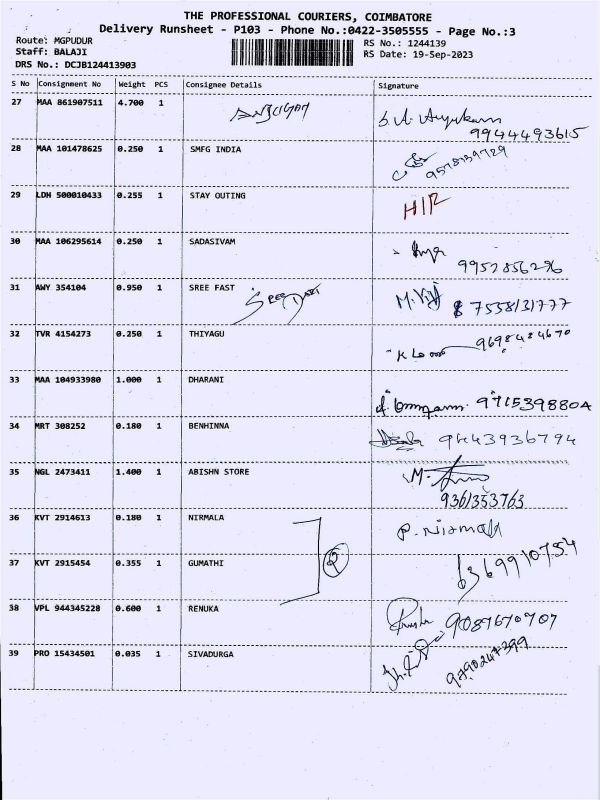 THE PROFESSIONAL COURIERS, COIMBATORE
Delivery Runsheet - P103 - Phone No.:0422-3505555 - Page No.:3
Route: MGPUDUR
RS No.: 1244139
Staff: BALAJI
RS Date: 19-Sep-2023
DRS No.: DCJB124413903
S No Consignment No Weight PCS Consignee Details Signature
27 MAA 861907511 4.700 1
9944493615
28 MAA 101478625 0.250 1 SMFG INDIA
9578139729
29 LDH 500010433 0.255 1 STAY OUTING
H/R
30 MAA 106295614 0.250 1 SADASIVAM
9952856296
31 AWY 354104 0.950 1 SREE FAST
M. Viji 7558131777
32 TVR 4154273 0.250 1 THIYAGU
9698484670
33 MAA 104933980 1.000 1 DHARANI
9715398804
34 MRT 308252 0.180 1 BENHINNA
9443936794
35 NGL 2473411 1.400 1 ABISHN STORE
9361353763
36 KVT 2914613 0.180 1 NIRMALA
P. Nirmala
37 KVT 2915454 0.355 1 GUMATHI
6369910754
38 VPL 944345228 0.600 1 RENUKA
9087670707
39 PRO 15434501 0.035 1 SIVADURGA
9790247399